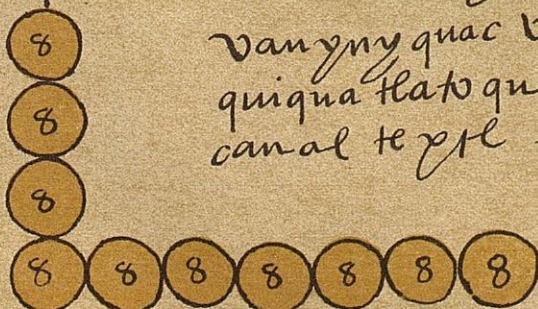 van yny quac
quiqua tlato qu
canal te
8
8
8
8 8 8 8 8 8 8